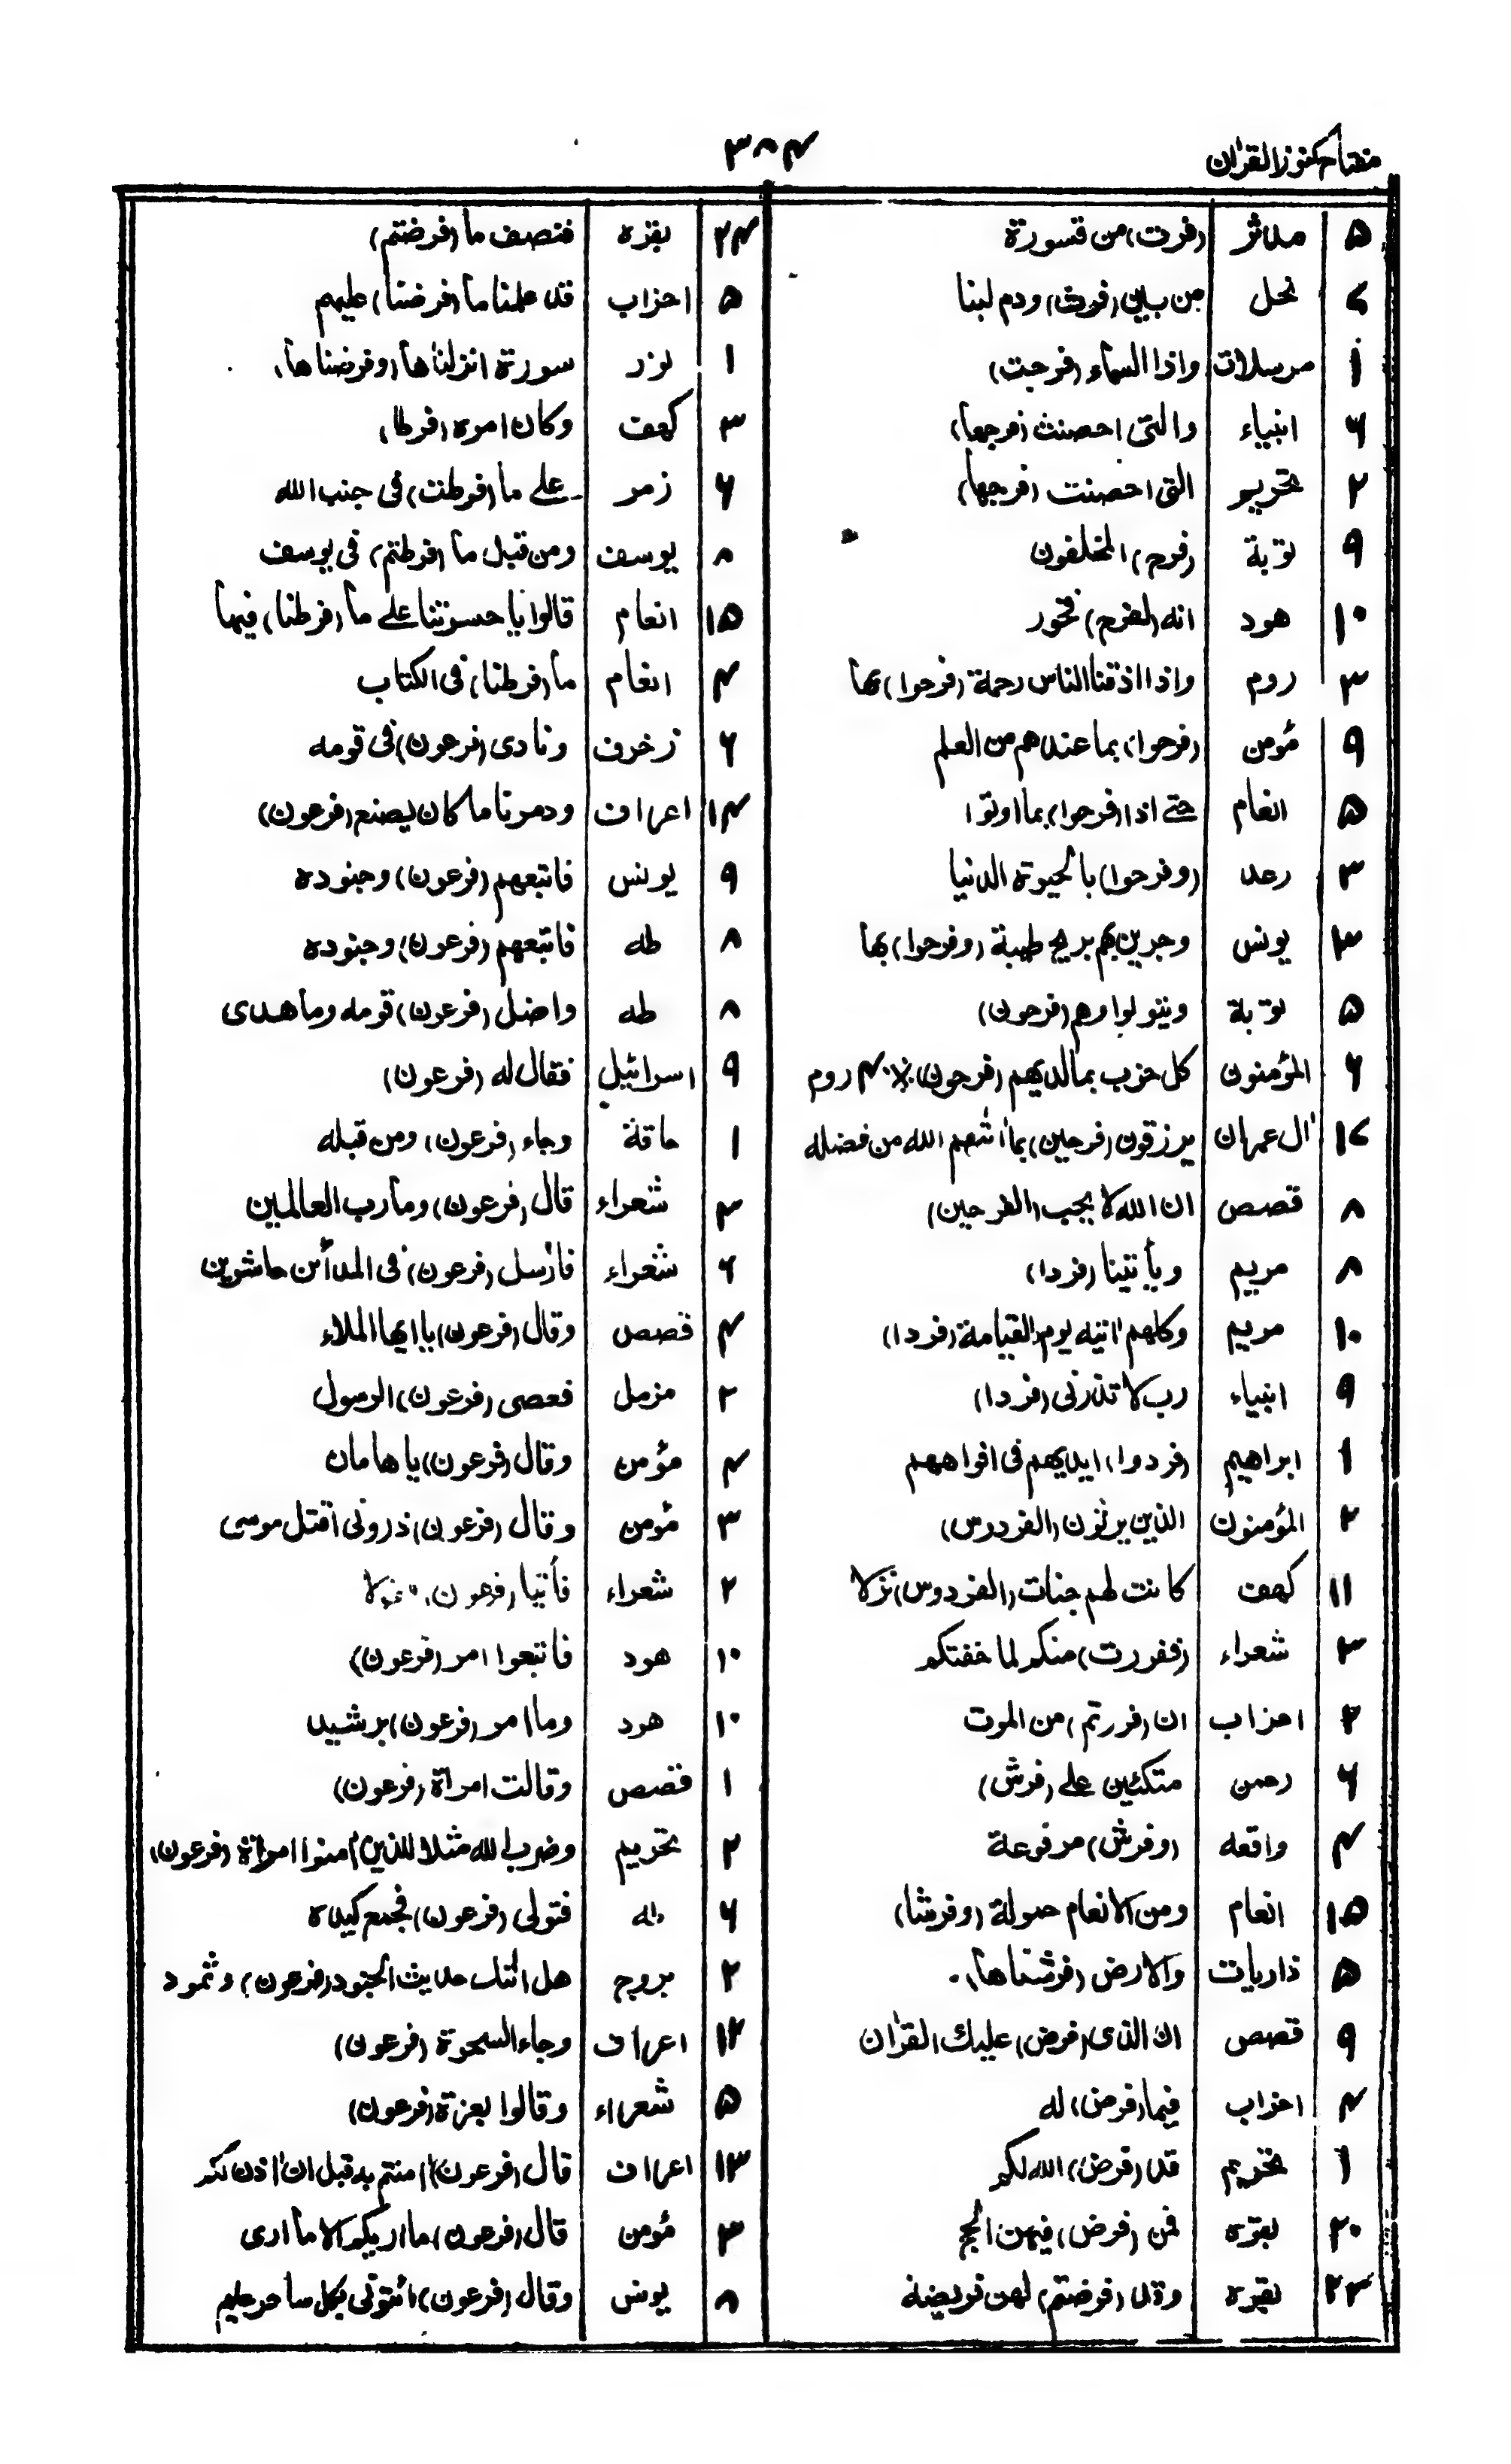 مفتاح كنوز القرٰان
۳۸۴
۵ مدثر (فرت) من قسورة
۷ نحل من بين (فرث) ودم لبنا
۱ مرسلات واذا السماء (فرجت)
۶ انبياء والتى احصنت (فرجها)
۲ تحريم التى احصنت (فرجها)
۹ توبة (فرح) المخلفون
۱۰ هود انه (لفرح) فخور
۳ روم واذا اذقنا الناس رحمة (فرحوا) بها
۹ مؤمن (فرحوا) بما عندهم من العلم
۵ انعام حتے اذا (فرحوا) بما اوتوا
۳ رعد (وفرحوا) بالحيوة الدنيا
۳ يونس وجرين بهم بريح طيبة (وفرحوا) بها
۵ توبة ويتولوا وهم (فرحون)
۶ المؤمنون كل حزب بما لديهم (فرحون) ۴ روم
۱۷ اٰل عمران يرزقون (فرحين) بما اٰتٰهم الله من فضله
۸ قصص ان الله لا يحب (الفرحين)
۸ مريم ويأتينا (فردا)
۱۰ مريم وكلهم اٰتيه يوم القيامة (فردا)
۹ انبياء رب لا تذرنى (فردا)
۱ ابراهيم (فردوا) ايديهم فى افواههم
۲ المؤمنون الذين يرثون (الفردوس)
۱۱ كهف كانت لهم جنات (الفردوس) نزلا
۲ شعراء (ففررت) منكم لما خفتكم
۲ احزاب ان (فررتم) من الموت
۶ رحمن متكئين على (فرش)
۴ واقعه (وفرش) مرفوعة
۱۵ انعام ومن الانعام حمولة (وفرشا)
۵ ذاريات والارض (فرشناها)
۹ قصص ان الذى (فرض) عليك القرٰان
۴ احزاب فيما (فرض) له
۱ تحريم قد (فرض) الله لكم
۲۰ بقره فمن (فرض) فيهن الحج
۲۳ بقره وقد (فرضتم) لهن فريضة
۲۴ بقره فنصف ما (فرضتم)
۵ احزاب قد علمنا ما (فرضنا) عليهم
۱ نور سورة انزلناها (وفرضناها)
۳ كهف وكان امره (فرطا)
۶ زمر على ما (فرطت) فى جنب الله
۸ يوسف ومن قبل ما (فرطتم) فى يوسف
۱۵ انعام قالوا يا حسرتنا على ما (فرطنا) فيها
۴ انعام ما (فرطنا) فى الكتاب
۶ زخرف ونادى (فرعون) فى قومه
۱۴ اعراف ودمرنا ما كان يصنع (فرعون)
۹ يونس فاتبعهم (فرعون) وجنوده
۸ طه فاتبعهم (فرعون) وجنوده
۸ طه واضل (فرعون) قومه وما هدى
۹ اسرائيل فقال له (فرعون)
۱ حاقة وجاء (فرعون) ومن قبله
۲ شعراء قال (فرعون) وما رب العالمين
۶ شعراء فارسل (فرعون) فى المدائن حاشرين
۴ قصص وقال (فرعون) يا ايها الملاء
۲ مزمل فعصى (فرعون) الرسول
۴ مؤمن وقال (فرعون) يا هامان
۳ مؤمن وقال (فرعون) ذرونى اقتل موسى
۲ شعراء فأتيا (فرعون) فقولا
۱۰ هود فاتبعوا امر (فرعون)
۱۰ هود وما امر (فرعون) برشيد
۱ قصص وقالت امراة (فرعون)
۲ تحريم وضرب الله مثلا للذين اٰمنوا امراة (فرعون)
۶ طه فتولى (فرعون) فجمع كيده
۲ بروج هل اتٰك حديث الجنود (فرعون) وثمود
۱۳ اعراف وجاء السحرة (فرعون)
۵ شعراء وقالوا بعزة (فرعون)
۱۳ اعراف قال (فرعون) اٰمنتم به قبل ان اٰذن لكم
۳ مؤمن قال (فرعون) ما اريكم الا ما ارى
۸ يونس وقال (فرعون) ائتونى بكل ساحر عليم